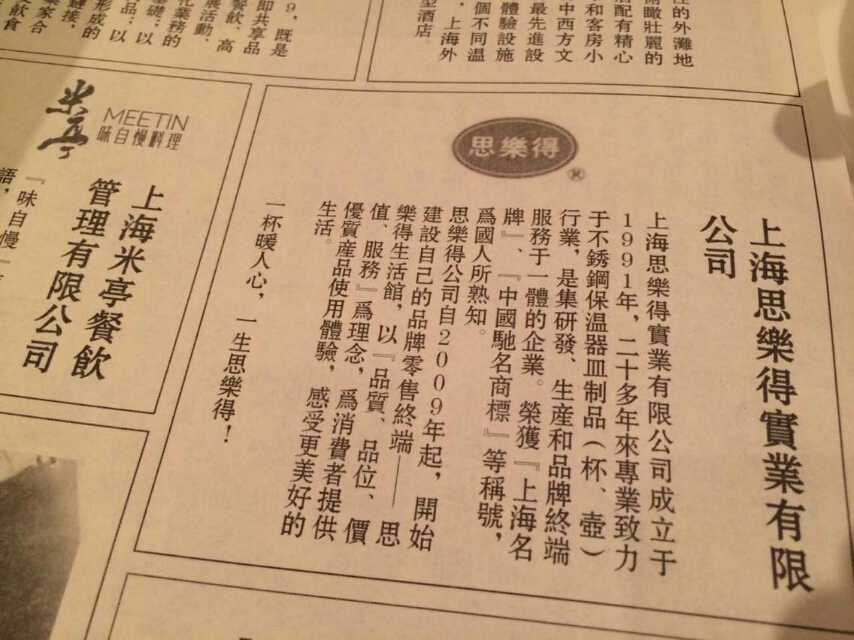 思樂得
®
上海思樂得實業有限
公司
上海思樂得實業有限公司成立于
1991年，二十多年來專業致力
于不銹鋼保溫器皿制品（杯、壺）
行業，是集研發、生産和品牌終端
服務于一體的企業。榮獲『上海名
牌』、『中國馳名商標』等稱號，
爲國人所熟知。
思樂得公司自2009年起，開始
建設自己的品牌零售終端——思
樂得生活館，以『品質、品位、價
值、服務』爲理念，爲消費者提供
優質産品使用體驗，感受更美好的
生活。
一杯暖人心，一生思樂得！
米亭
MEETIN
味自慢料理
上海米亭餐飲
管理有限公司
『味自慢
語，
的外灘地
瞰壯麗的
配有精心
和客房小
中西方文
最先進設
體驗設施
個不同溫
，上海外
型酒店。
9，既是
即共享品
餐飲、高
展活動、
化業務的
基礎：以
品：以
形成的
鏈接，
家合
飲食